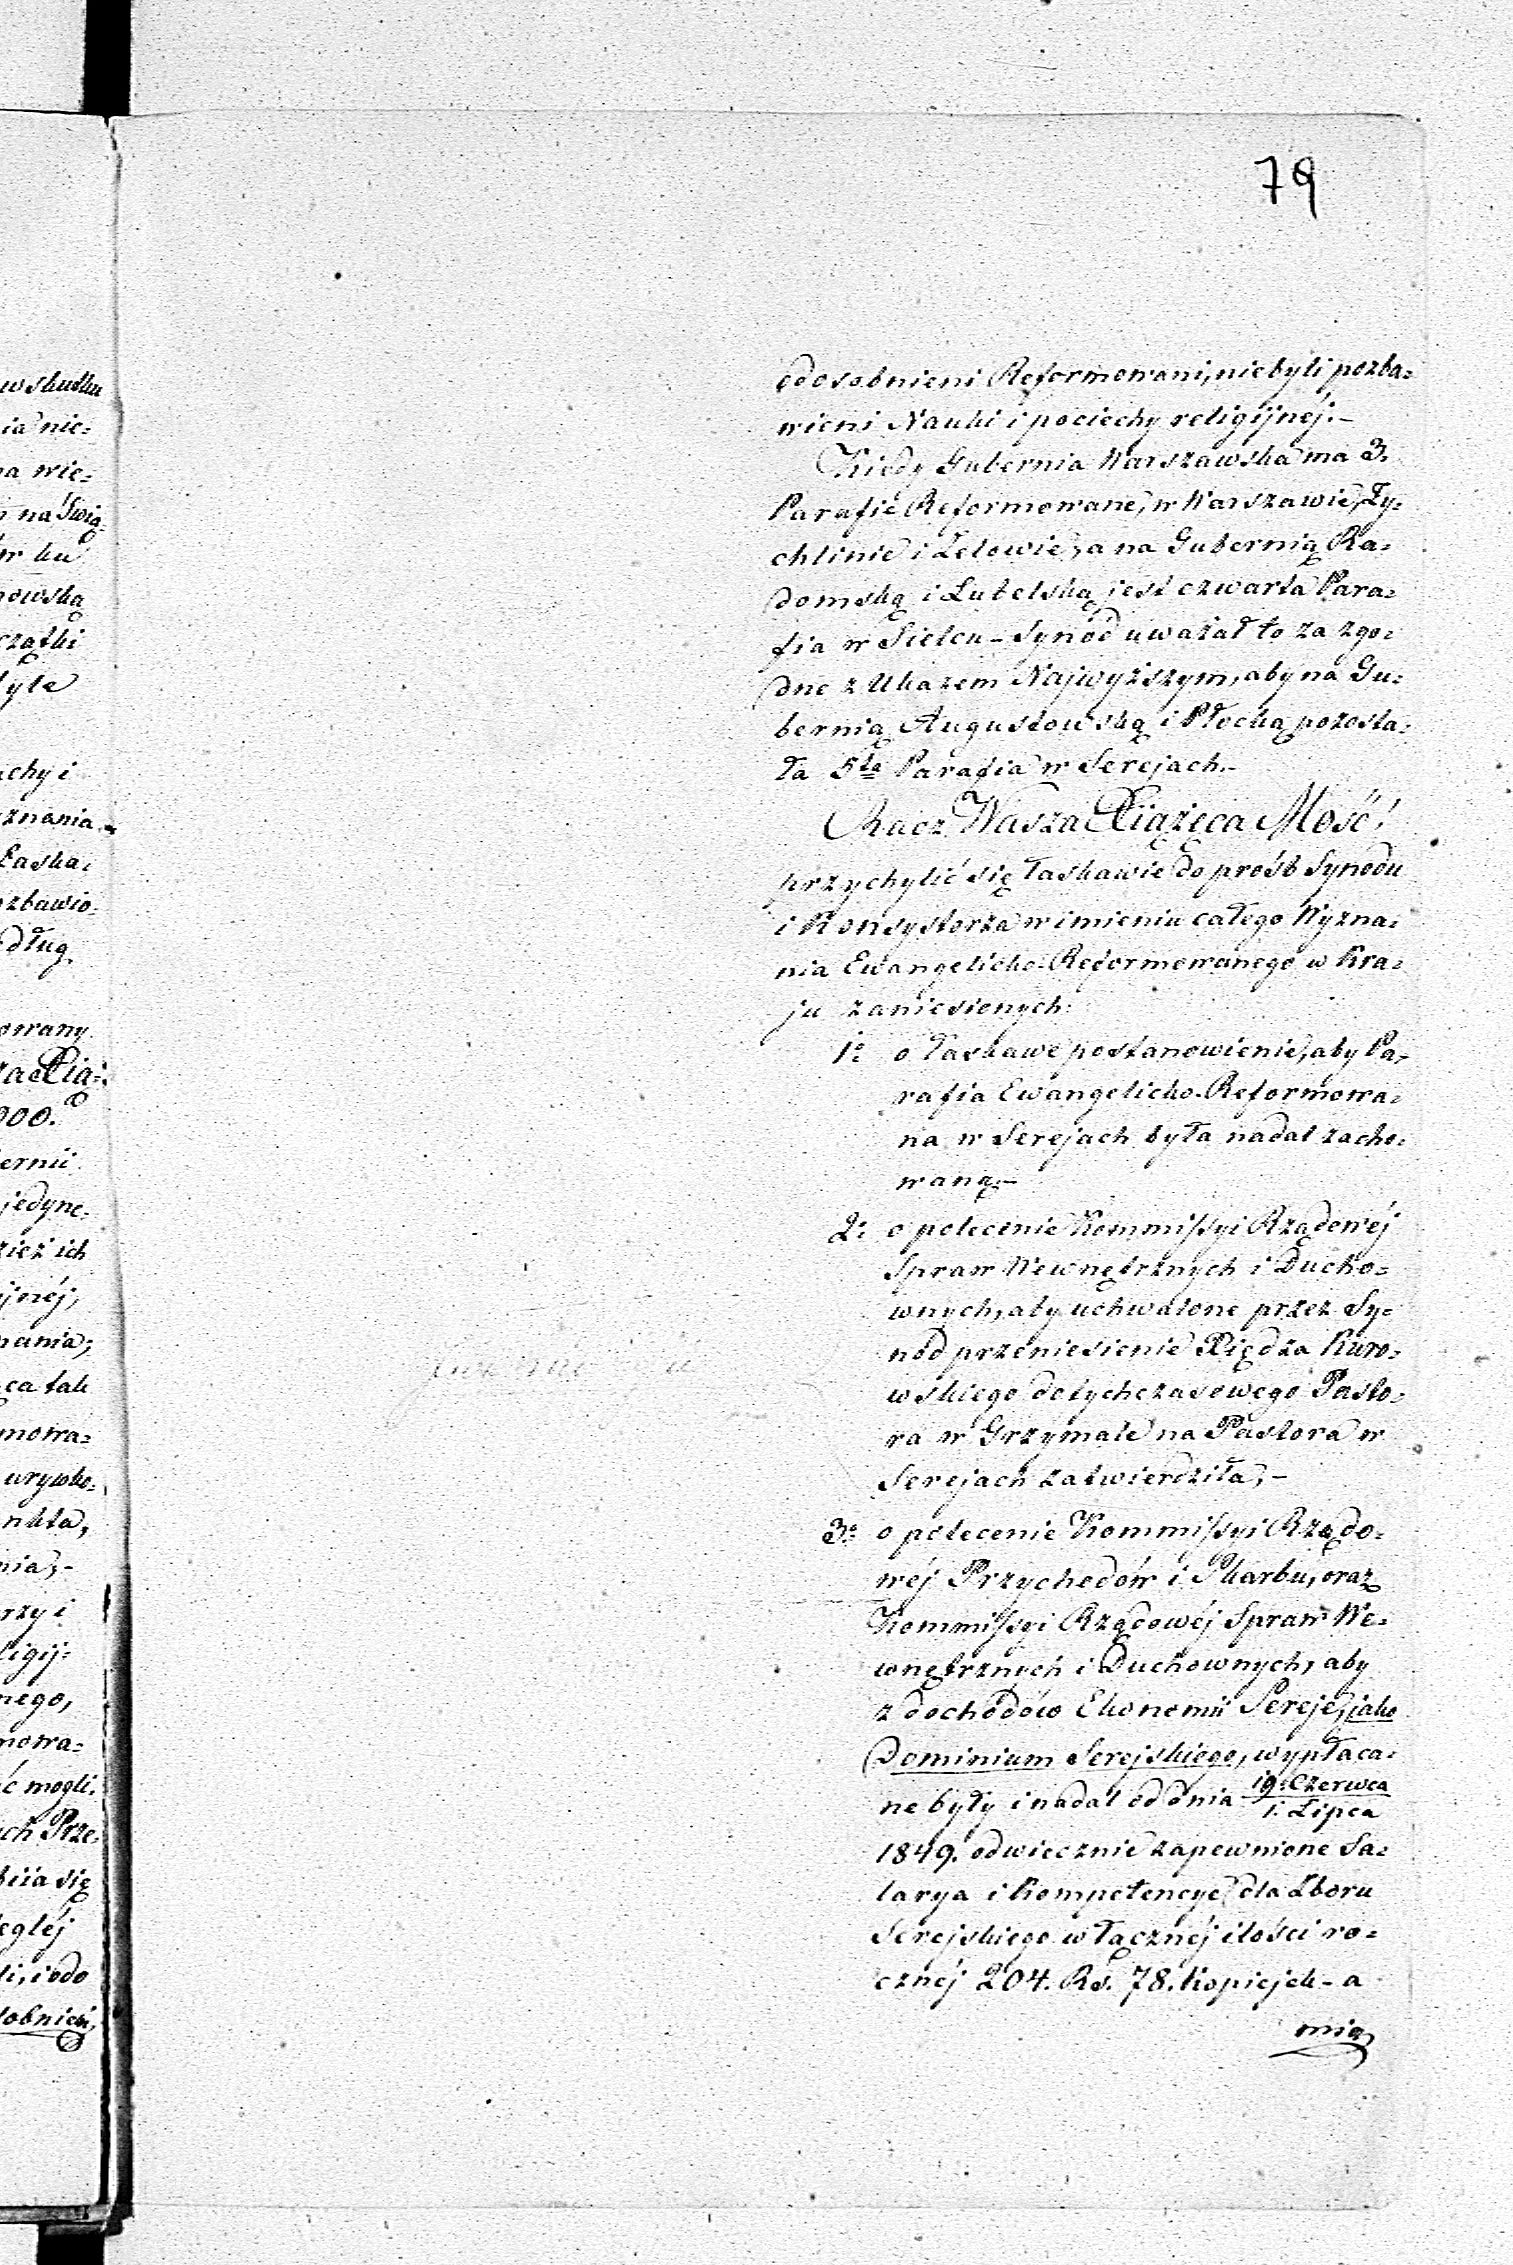 79
odosobnieni Reformowani, niebyli pozba=
wieni Nauki i pociechy religijnéj.–
Kiedy Gubernia Warszawska ma 3.
Parafie Reformowane, w Warszawie, Ży=
chlinie i Zelowie, a na Gubernią Ra=
domską i Lubelską jest czwarta Para=
fia w Sielcu – Synod uważał to za zgo=
dne z Ukazem Najwyższym, aby na Gu=
bernią Augustowską i Płocką pozosta=
ła 5ta Parafia w Serejach.–
Racz Wasza Xiążęca Mość!
przychylić się łaskawie do próśb Synodu
i Konsystorza w imieniu całego Wyzna=
nia Ewangelicko-Reformowanego w Kra=
ju zaniesionych:
1o o łaskawe postanowienie, aby Pa=
rafia Ewangelicko-Reformowa=
na w Serejach była nadal zacho=
waną.–
2o o polecenie Kommissyi Rządowéj
Spraw Wewnętrznych i Ducho=
wnych, aby uchwalone przez Sy=
nod przeniesienie Xiędza Kuro=
wskiego dotychczasowego Pasto=
ra w Grzymale na Pastora w
Serejach zatwierdziła,–
3o o polecenie Kommissyi Rządo=
wéj Przychodów i Skarbu, oraz
Kommissyi Rządowéj Spraw We=
wnętrznych i Duchownych, aby
z dochodów Ekonomii Sereje, jako
Dominium Serejskiego, wypłaca=
ne były i nadal od dnia 19. Czerwca / 1. Lipca
1849. odwiecznie zapewnione Sa=
larya i Kompetencye dla Zboru
Serejskiego w łącznéj ilości ro=
cznéj 204. Rs. 78. kopiejek – a
mia
wskutku
ia nie=
na wie=
na Świą=
w ku
nowską
czątki
yle
uchy i
znania
Łaska=
ozbawio=
dług
owany
za Xią=
000.
ernii
jedyne=
zież ich
jnéj,
nania;
ca tak
mowa=
urywko=
nkta,
nia,–
rzy i
ligij=
nego,
mowa=
ć mogli.
ch Prze=
biia się
egléj
li, i odo
sobnieni,